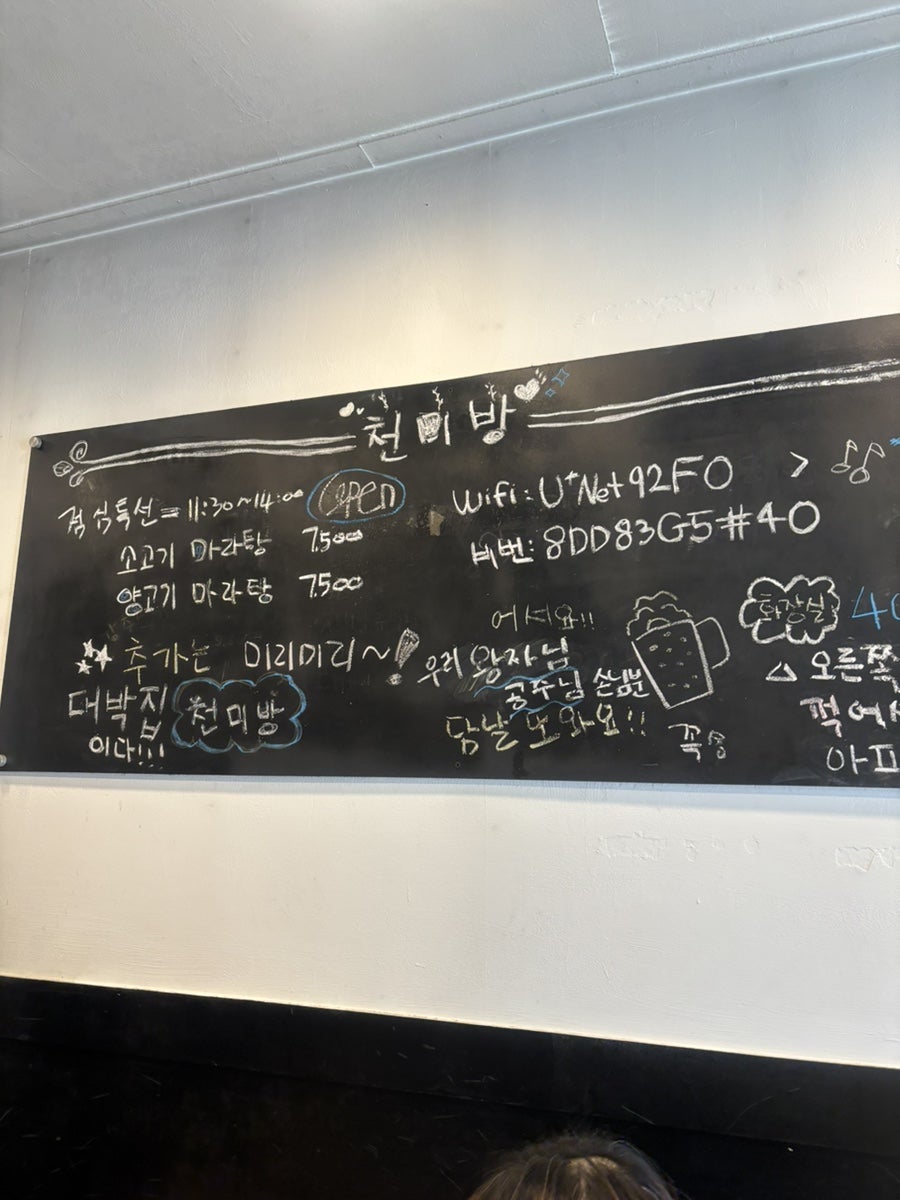 천미방
점심특선 = 11:30~14:00 Open
소고기 마라탕 7.500
양고기 마라탕 7.500
추가는 미리미리~!
대박집 천미방
이다!!!
Wifi: U+Net92F0 >
비번: 8DD83G5#40
어서요!!
우리 왕자님
공주님 손님분
담날 또 와요!!
꼭용
화장실 40
△ 오른쪽
적어서
아피